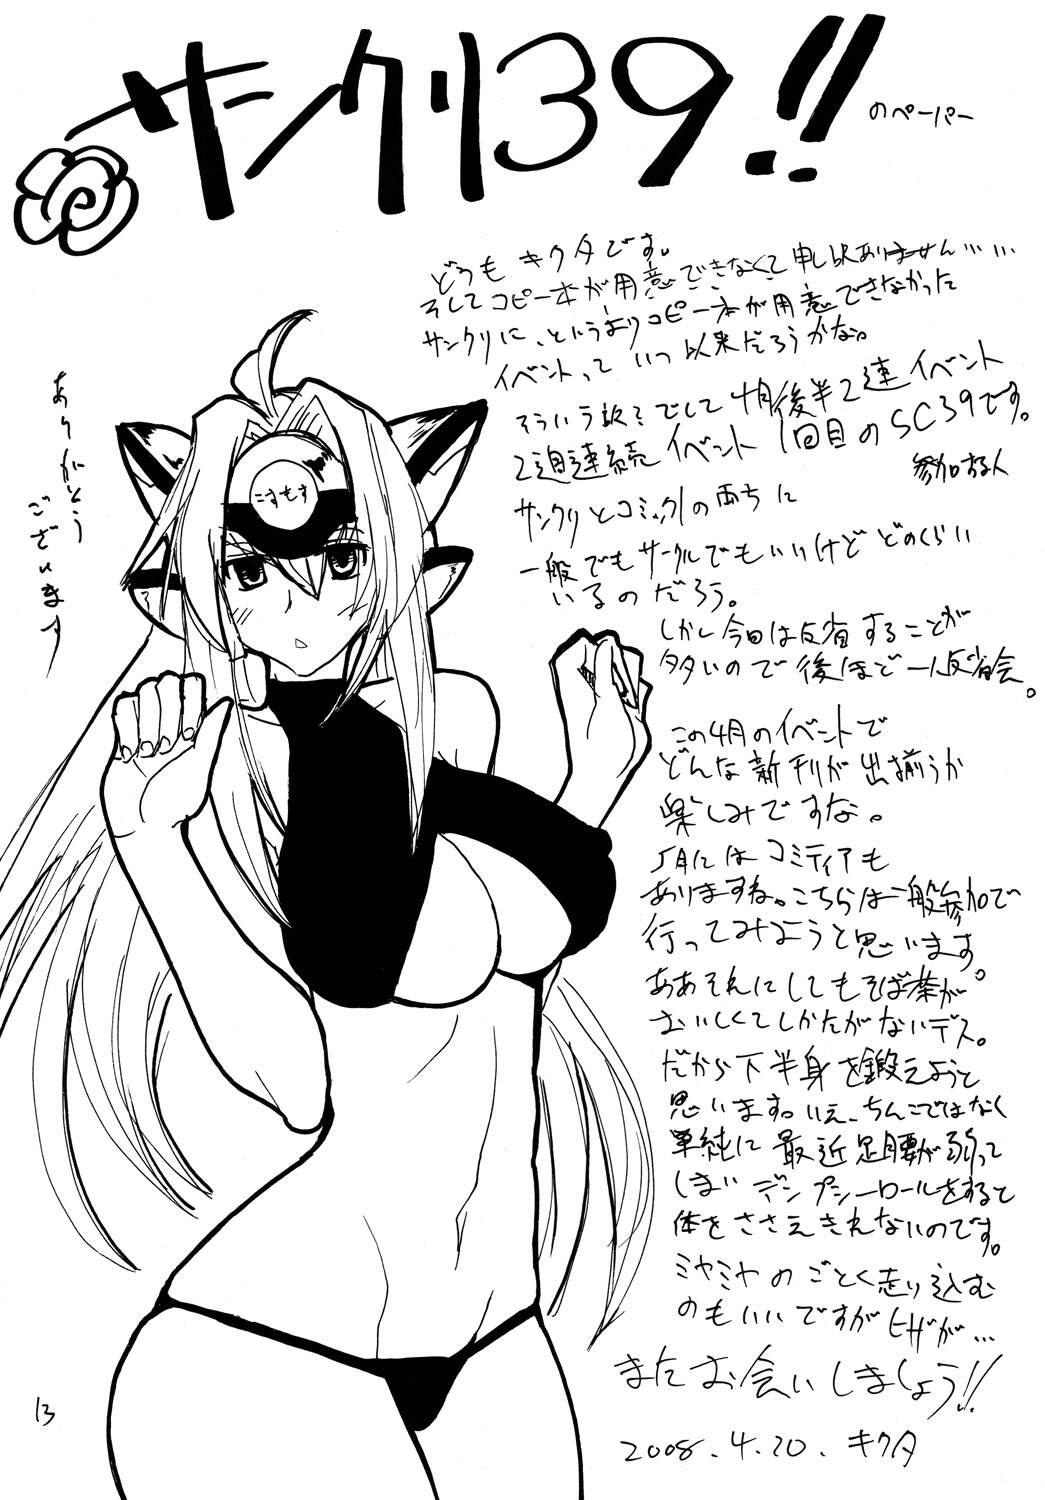 サンクリ39!!
のペーパー
どうも キクタです。
そしてコピー本が用意できなくて申し訳ありません……
サンクリに、というよりコピー本が用意できなかった
イベントって いつ 以来だろうかな。
そういう訳でして 4月後半2連イベント
2週連続 イベント 1回目のSC39です。
サンクリとコミック1の両方に
参加する人
一般でもサークルでもいいけど どのくらい
いるのだろう。
しかし今回は反省することが
多いので 後ほど 一人反省会。
この4月のイベントで
どんな新刊が出揃うか
楽しみですな。
5月にはコミティアも
ありますね。こちらは一般参加で
行ってみようと思います。
ああそれにしてもそば茶が
おいしくてしかたがないデス。
だから下半身を鍛えようと
思います。いえ、ちんこではなく
単純に最近足腰が弱って
しまい デンプシーロールをすると
体をささえきれないのです。
ミヤミヤのごとく走り込む
のもいいですが ヒザが…
またお会いしましょう!!
2008.4.20. キクタ
ありがとう
ございます
こすもす
13